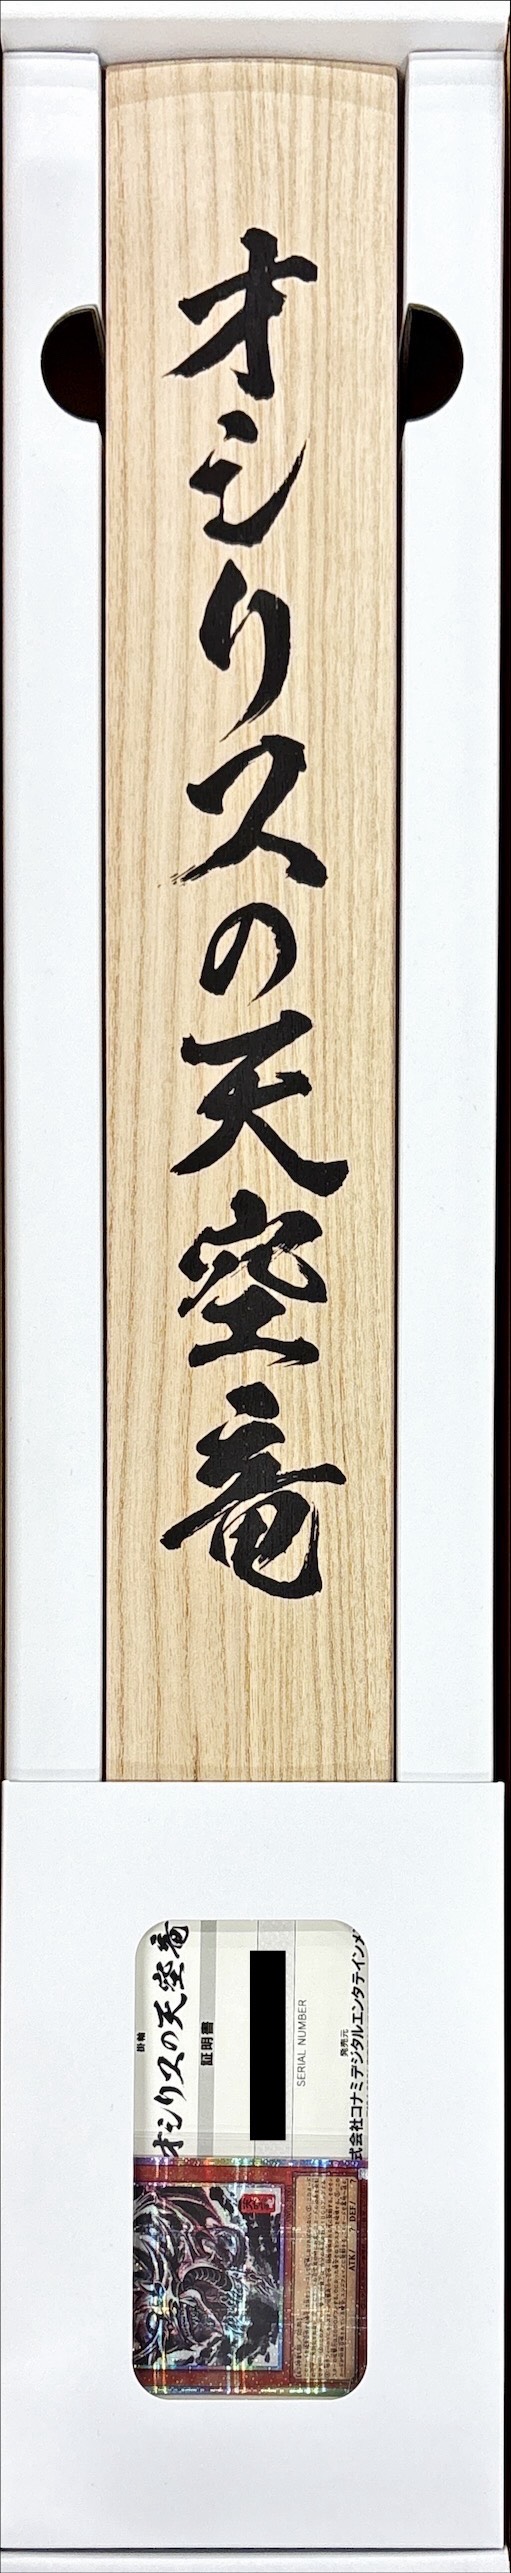 オシリスの天空竜
掛軸
オシリスの天空竜
証明書
SERIAL NUMBER
発売元
式会社コナミデジタルエンタテインメ
ATK/ ? DEF/ ?